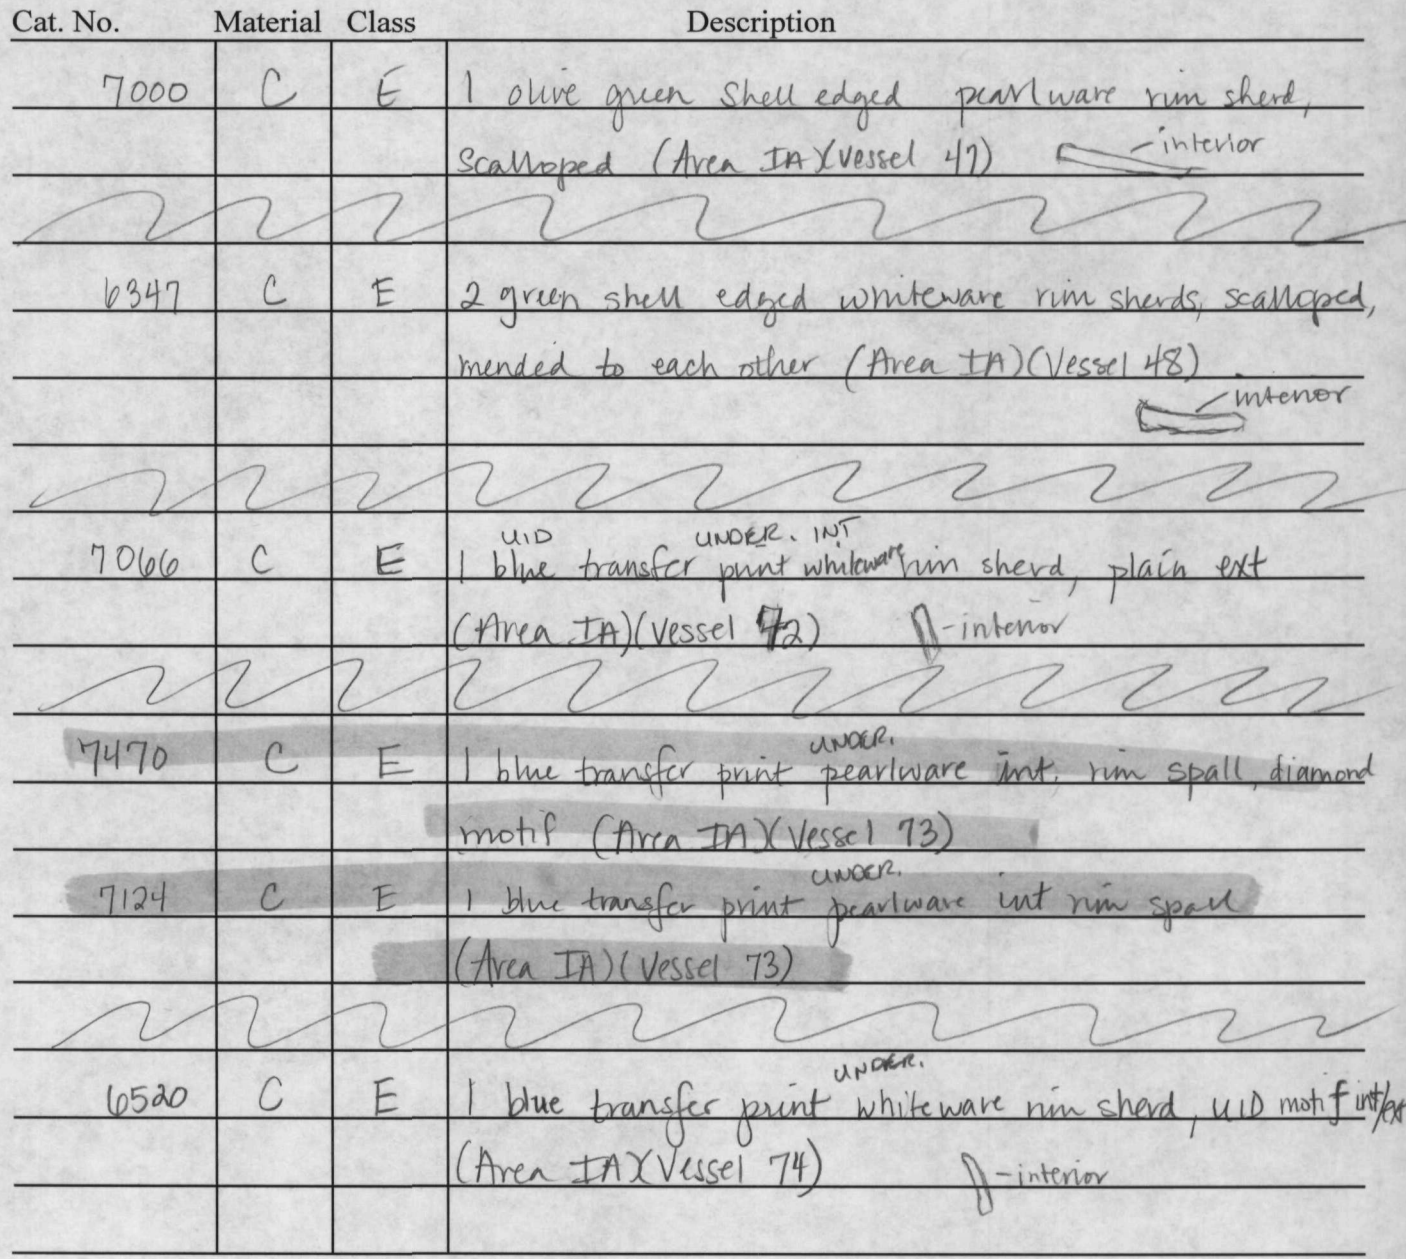 Cat. No. Material Class Description
7000 C E 1 olive green shell edged pearlware rim sherd,
scalloped (Area IA)(Vessel 47) - interior
6347 C E 2 green shell edged whiteware rim sherds, scalloped,
mended to each other (Area IA)(Vessel 48)
interior
UID UNDER. INT
7066 C E 1 blue transfer print whiteware rim sherd, plain ext
(Area IA)(Vessel 72) - interior
UNDER.
7470 C E 1 blue transfer print pearlware int. rim spall, diamond
motif (Area IA)(Vessel 73)
UNDER.
7124 C E 1 blue transfer print pearlware int rim spall
(Area IA)(Vessel 73)
UNDER.
6520 C E 1 blue transfer print whiteware rim sherd, UID motif int/ext
(Area IA)(Vessel 74) - interior